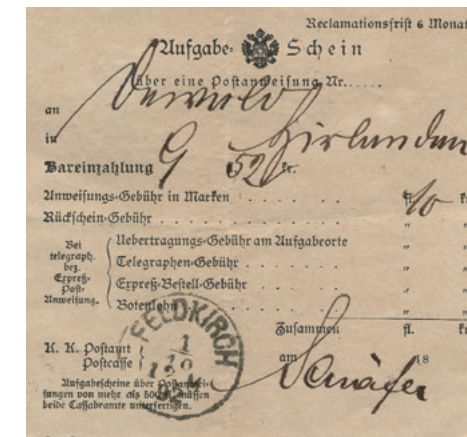 Reclamationsfrist 6 Monat
Aufgabe-Schein
über eine Postanweisung Nr......
an Oswald
in Hirlanden
Bareinzahlung 9 fl. 52 kr.
Anweisungs-Gebühr in Marken . . . . . fl. 10 kr
Rückschein-Gebühr . . . . . . . . . . „ „
Bei telegraph. bez. Expreß-Post-Anweisung.
Uebertragungs-Gebühr am Aufgabeorte „ „
Telegraphen-Gebühr . . . . . . „ „
Expreß-Bestell-Gebühr . . . . . „ „
Botenlohn . . . . . . . „ „
Zusammen fl. kr
K. K. Postamt
Postcasse
am 18
FELDKIRCH
Schäfer
Aufgabescheine über Postanwei-
sungen von mehr als 500 fl. müssen
beide Cassabeamte unterfertigen.